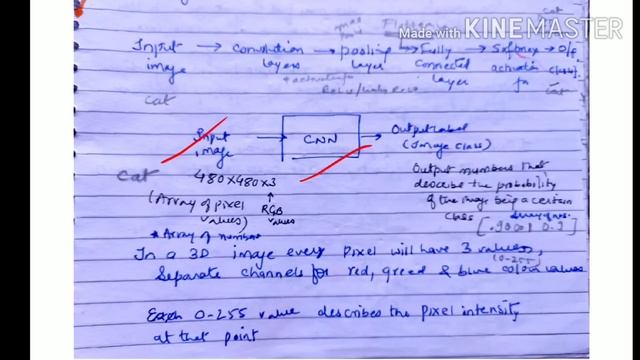 Made with KINEMASTER
cat
max pool Flatten
Input → Convolution → pooling → Fully → Softmax → O/p
image layers layer Connected activation class
+ activation layer fn cat
cat
Relu/
Input → CNN → Output label
image (Image class)
cat 480x480x3 Output numbers that
(Array of pixel RGB describe the probability
values) values of the image being a certain
* Array of numbers class
In a 3D image every pixel will have 3 values,
(0-255)
Separate channels for red, greed & blue colour values
Each 0-255 value describes the pixel intensity
at that point